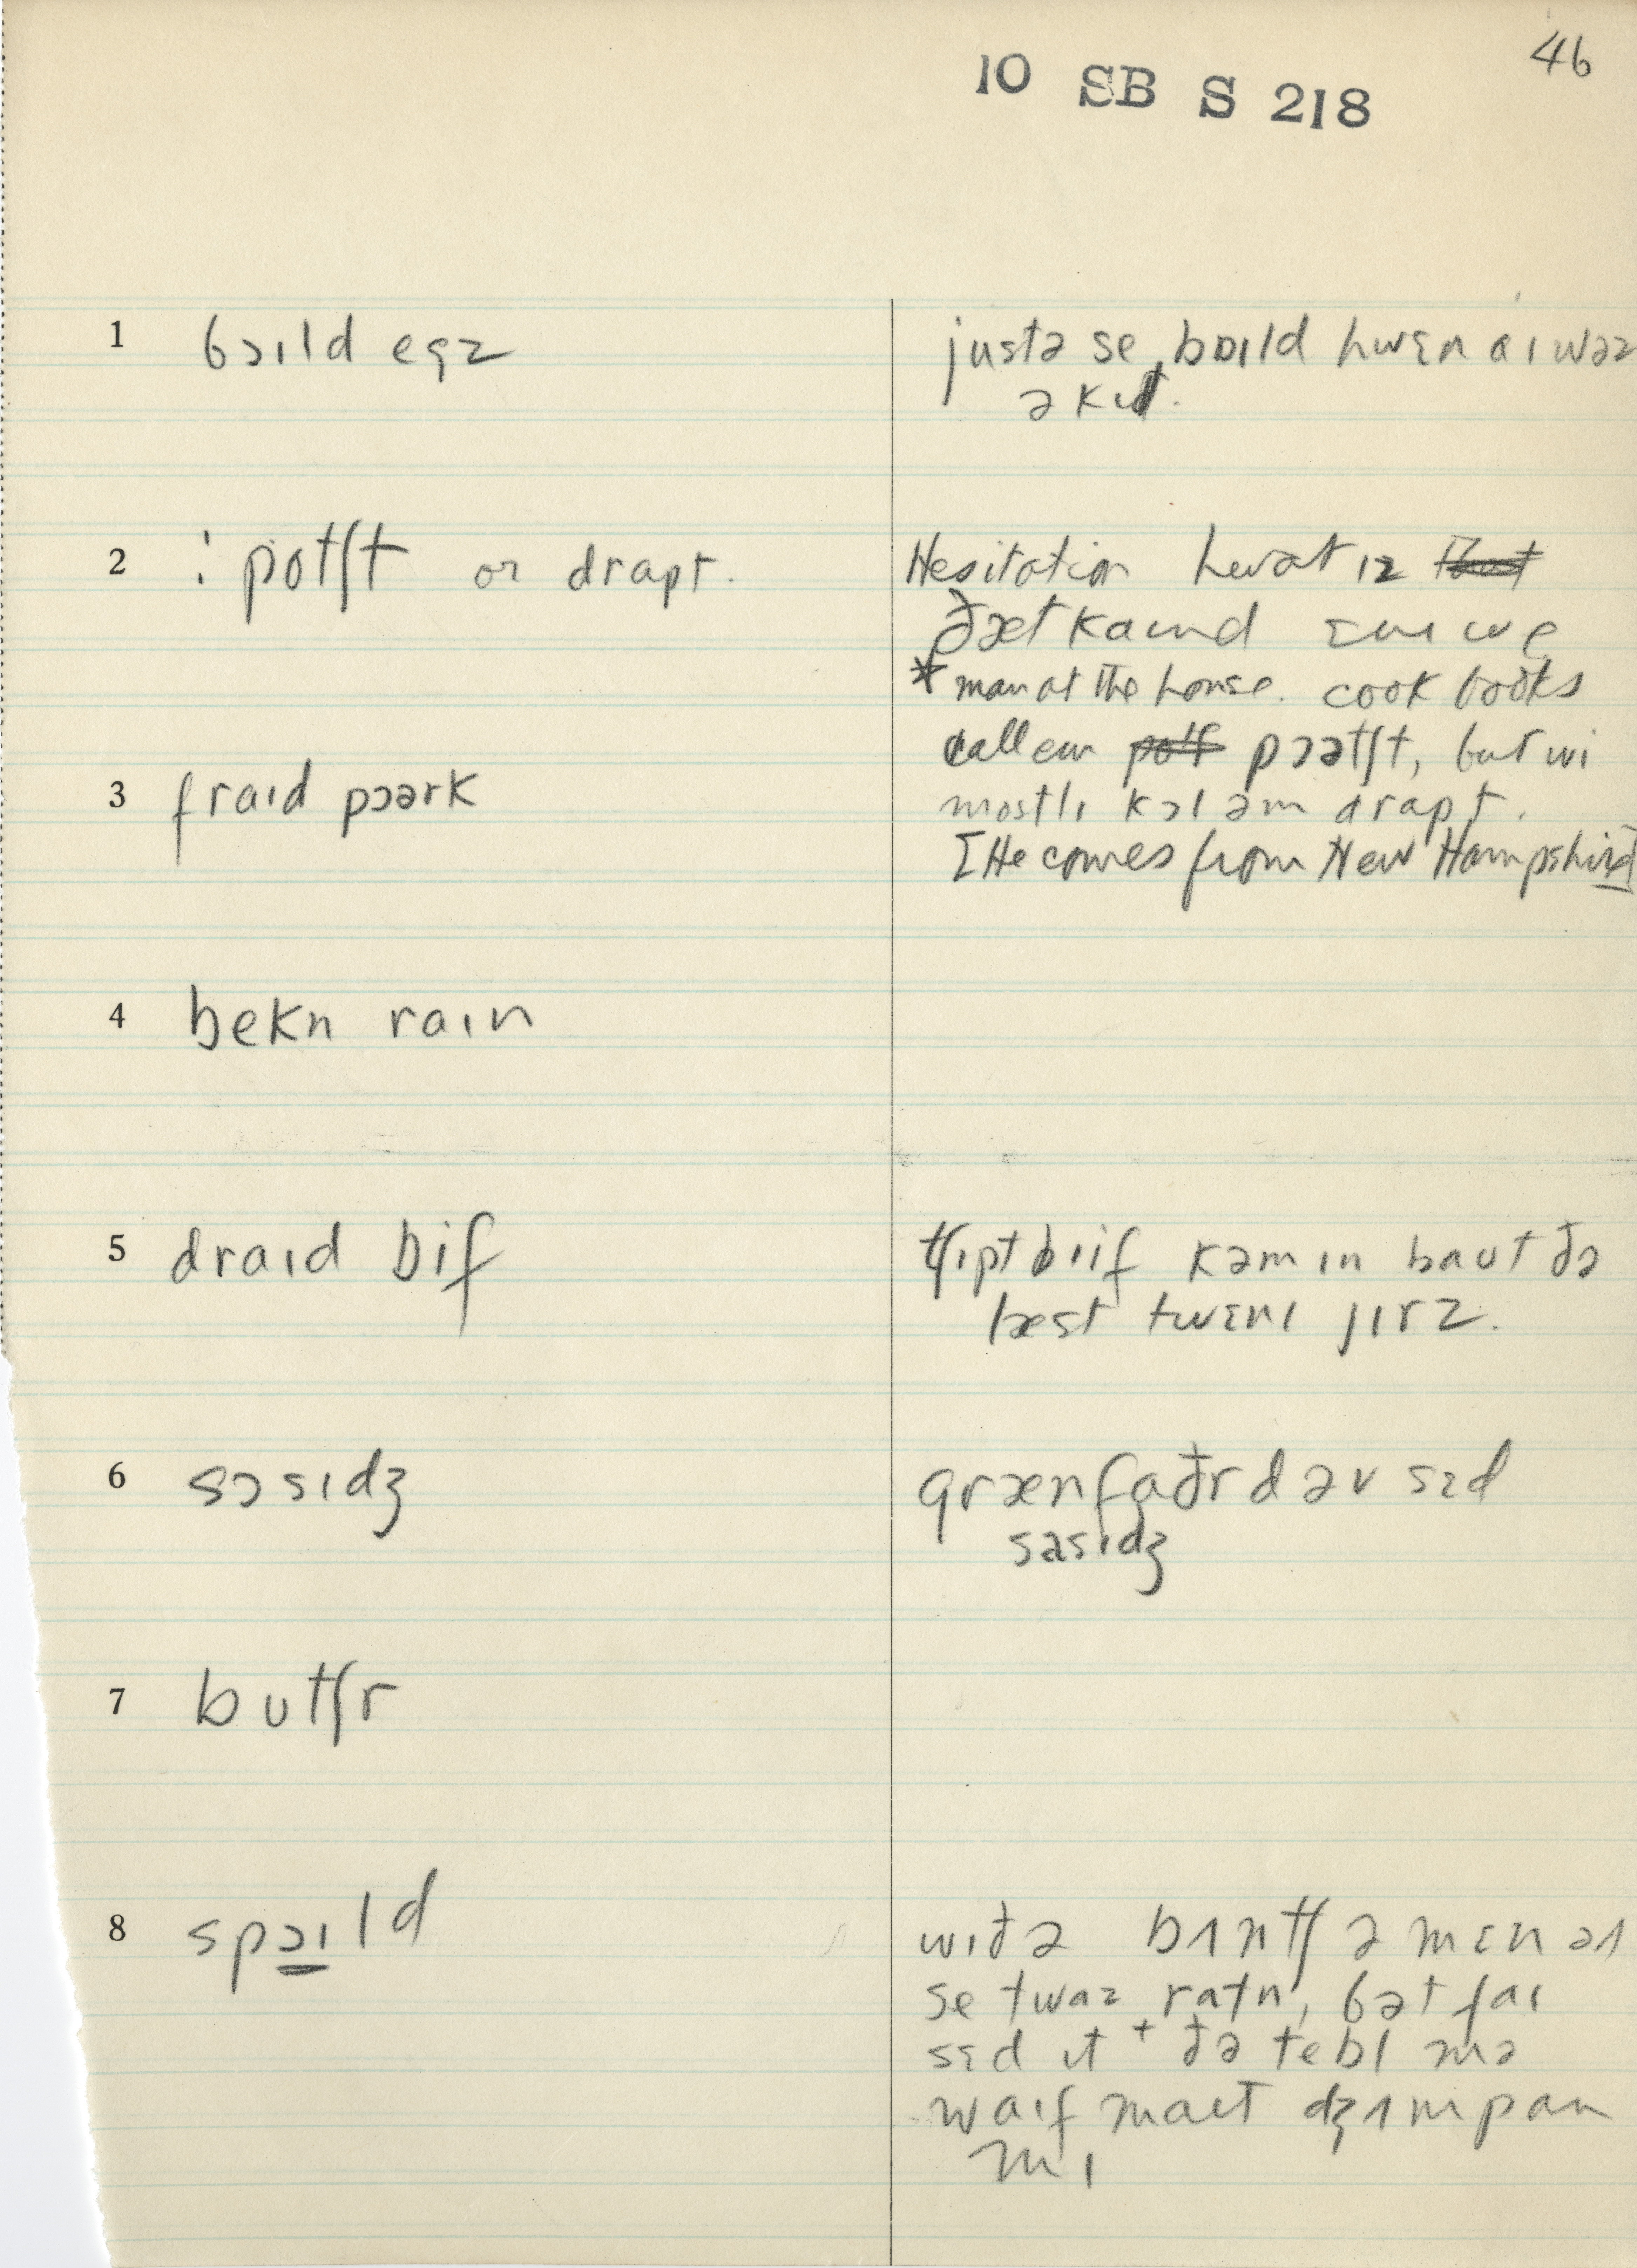 46
10 SB S 218
1 bɔɪld egz
justə se bɒɪld hwɛn aɪ wəz
ə kɪd.
2 ⁝ potʃt or drapt.
Hesitation hwat ɪz that
ðæt kaɪnd ɛnɪwe
* man at the house. cook books
call em potʃ pɔətʃt, but wi
mostlɪ kɔl əm drapt.
[He comes from New Hampshire]
3 fraɪd pɔərk
4 bekn raɪn
5 draɪd bif
tʃɪpt biif kəm ɪn baut ðə
læst twɛnɪ jɪrz.
6 sɔsɪdʒ
grænfaðr d əv sɛd
sasɪdʒ
7 butʃr
8 spɔɪld
wɪð ə bʌntʃ ə mɛn aɪ
se twaz ratn, bət f aɪ
sɛd ɪt + ðə tebl mə
waɪf maɪt dʒʌmp an
mɪ